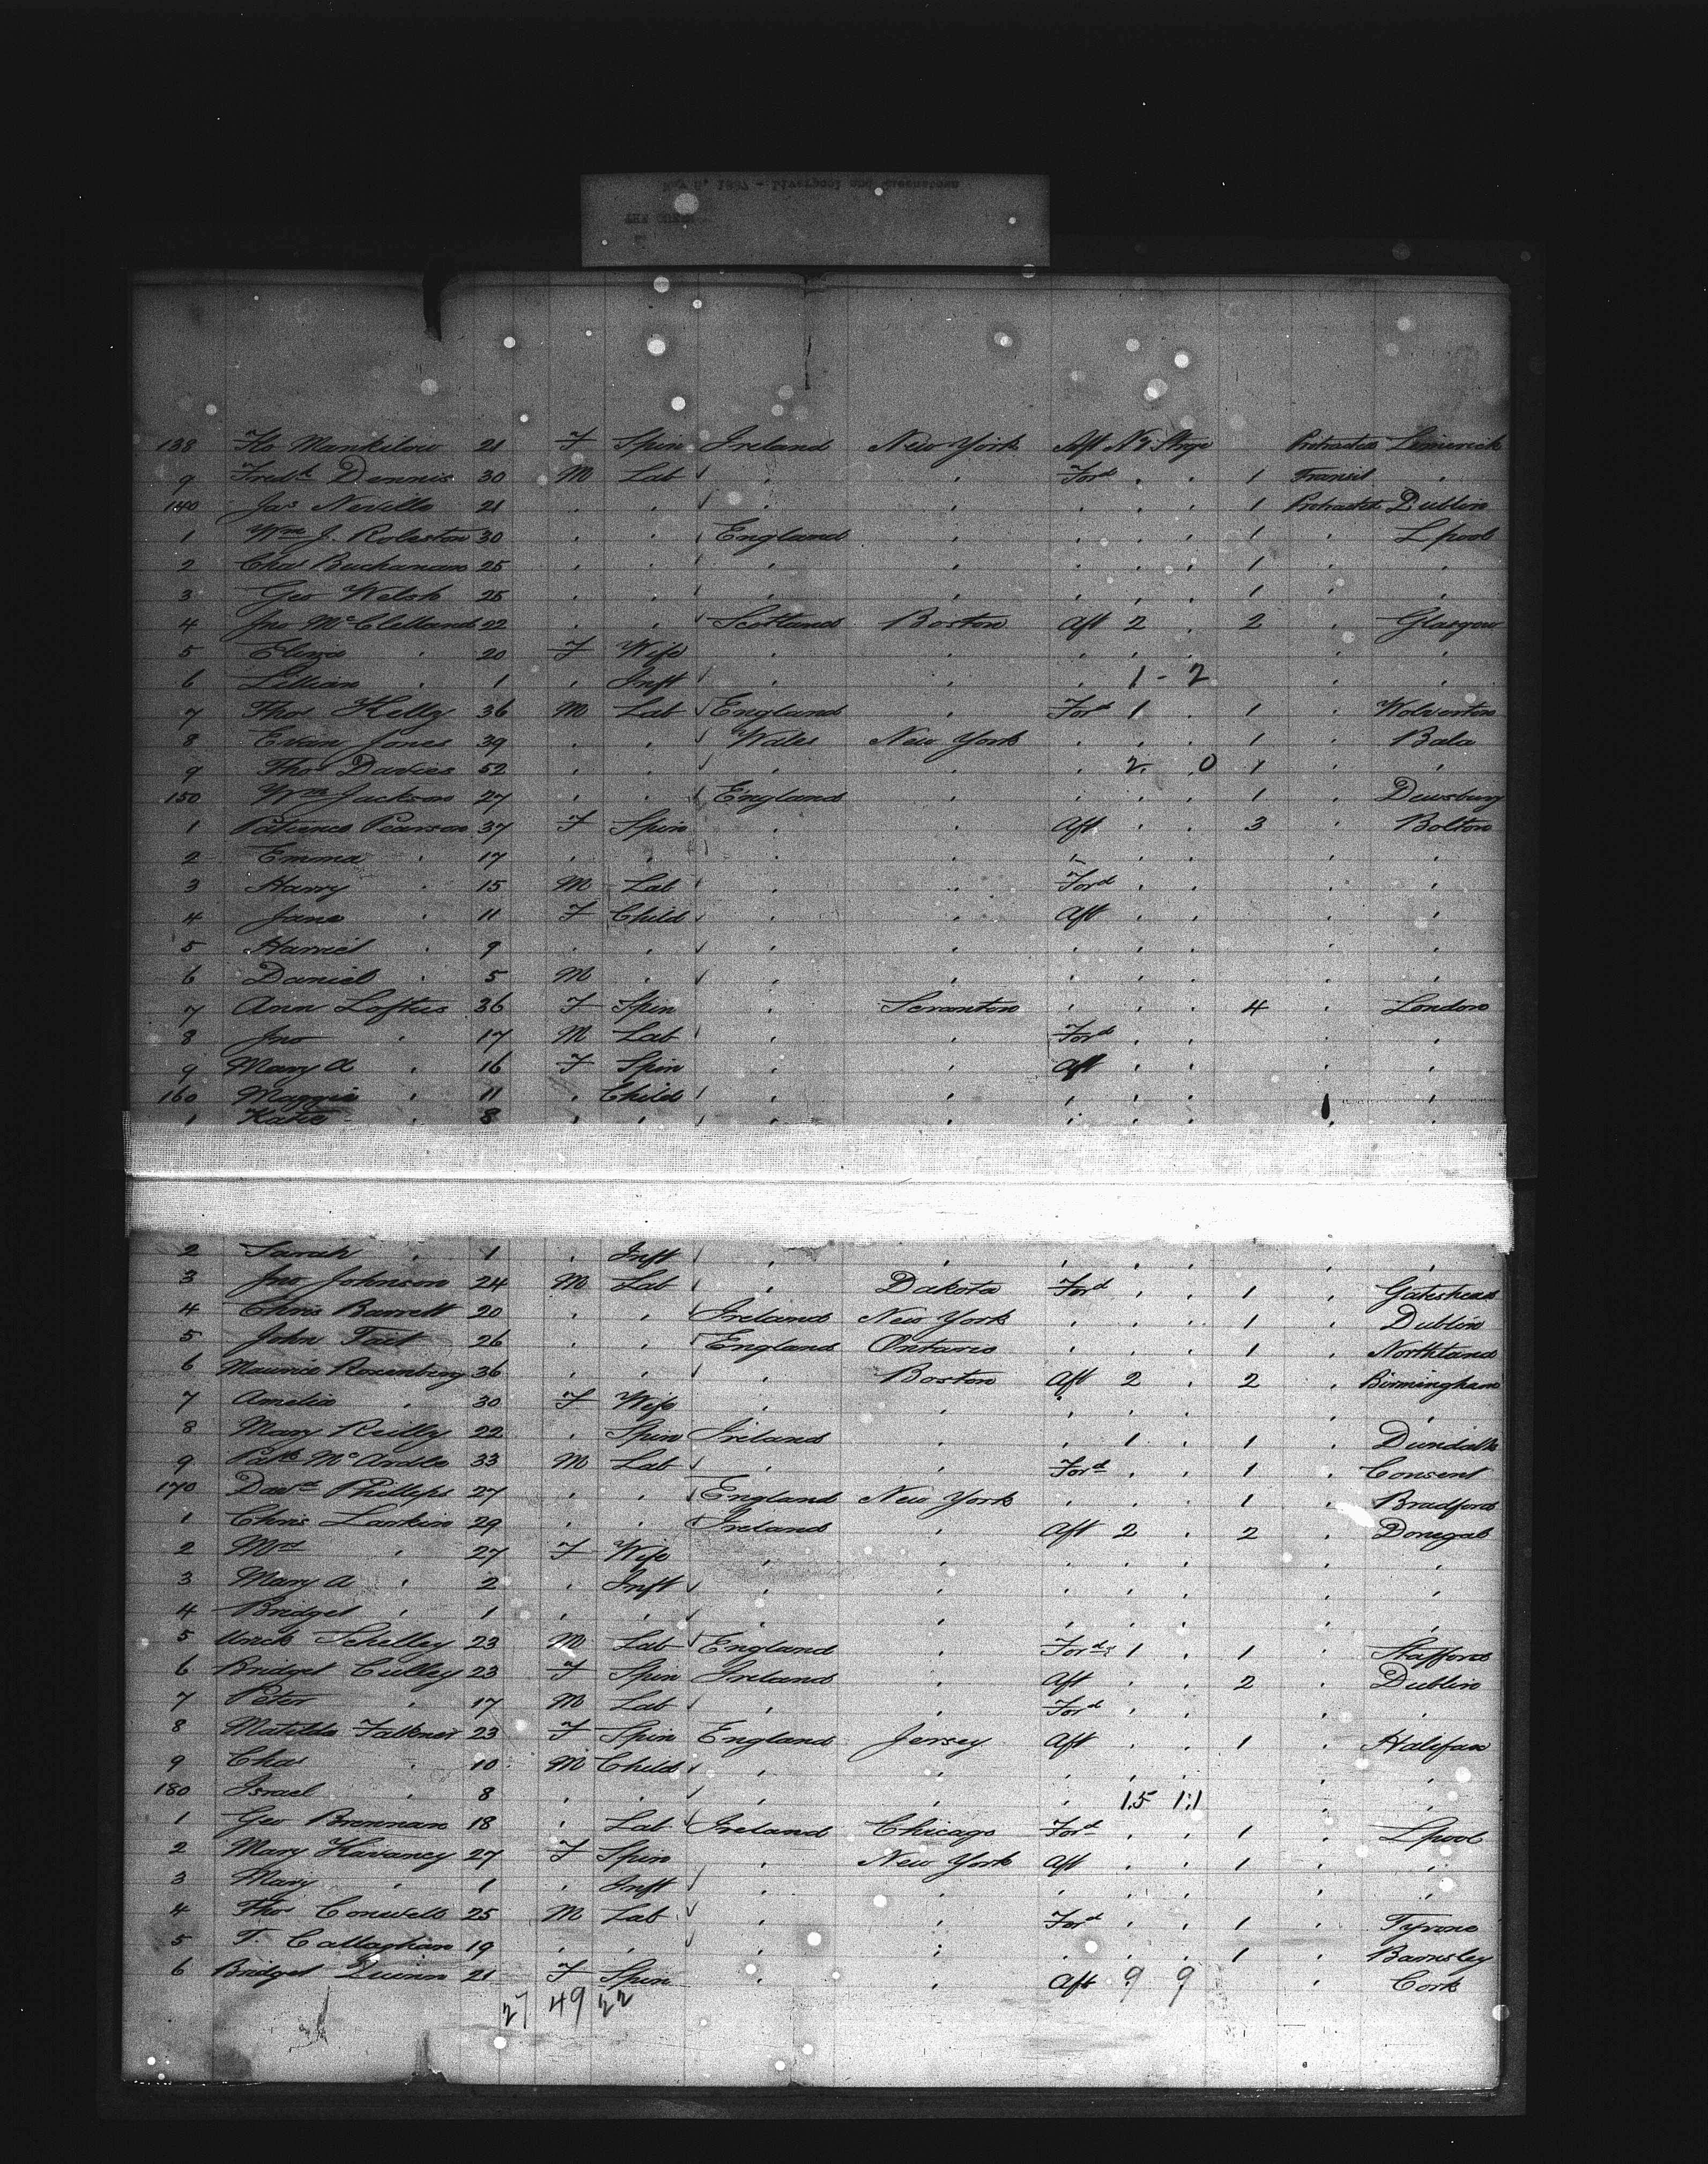 May 5, 1887 - Liverpool and Queenstown
THE QUEEN
138 Flo Mankilow 21 F Spin Ireland New York Aft No 1 Strge Protracted Limerick
9 Fredk Dennis 30 M Lab " " Ford " " 1 Transit "
140 Jas Neville 21 " " " " " " " 1 Protracted Dublin
1 Wm J. Roleston 30 " " England " " " " 1 " Lpool
2 Chas Buchanan 25 " " " " " " " 1 " "
3 Geo Welsh 25 " " " " " " " 1 " "
4 Jno McClelland 22 " " Scotland Boston Aft 2 " 2 " Glasgow
5 Eliza " 20 F Wife " " " " " " "
6 Lillian " 1 " Inft " " " 1 - 2 " "
7 Thos Kelly 36 M Lab England " Ford 1 " 1 " Wolverton
8 Evan Jones 39 " " Wales New York " " " 1 " Bala
9 Thos Davies 52 " " " " " 2 0 1 " "
150 Wm Jackson 27 " " England " " " " 1 " Dewsbury
1 Patience Pearson 37 F Spin " " Aft " " 3 " Bolton
2 Emma " 17 " " " " " " " " "
3 Harry " 15 M Lab " " Ford " " " "
4 Jane " 11 F Child " " Aft " " " "
5 Harriet " 9 " " " " " " " " "
6 Daniel " 5 M " " " " " " " "
7 Ann Loftus 36 F Spin " Scranton " " " 4 " London
8 Jno " 17 M Lab " " Ford " " " "
9 Mary A " 16 F Spin " " Aft " " " "
160 Maggie " 11 " Child " " " " " " "
1 Katie " 8 " " " " " " " " "
2 Sarah " 1 " Inft " " " " " " "
3 Jno Johnson 24 M Lab " Dakota Ford " " 1 " Gateshead
4 Chris Barrett 20 " " Ireland New York " " " 1 " Dublin
5 John Tait 26 " " England Ontario " " " 1 " Northland
6 Maurice Rosenberg 36 " " " Boston Aft 2 " 2 " Birmingham
7 Amelia " 30 F Wife " " " " " " "
8 Mary Reilly 22 " Spin Ireland " " 1 " 1 " Dundalk
9 Patk McArdle 33 M Lab " " Ford " " 1 " Consent
170 Davd Phillips 27 " " England New York " " " 1 " Bradford
1 Chris Larkin 29 " " Ireland " Aft 2 " 2 " Donegal
2 Mrs " 27 F Wife " " " " " " "
3 Mary A " 2 " Inft " " " " " " "
4 Bridget " 1 " " " " " " " " "
5 Schelley 23 M Lab England " Ford 1 " 1 " Stafford
6 Bridget Culley 23 F Spin Ireland " Aft " " 2 " Dublin
7 Peter " 17 M Lab " " Ford " " " "
8 Matilda Falkner 23 F Spin England Jersey Aft " " 1 " Halifax
9 Chas " 10 M Child " " " " " " "
180 Israel " 8 " " " " " 15 11 " "
1 Geo Brennan 18 " Lab Ireland Chicago Ford " " 1 " Lpool
2 Mary Kavaney 27 F Spin " New York Aft " " 1 " "
3 Mary " 1 " Inft " " " " " " "
4 Thos Conwell 25 M Lab " " Ford " " 1 " Tyrone
5 T. Callaghan 19 " " " " " " " 1 " Barnsley
6 Bridget Quinn 21 F Spin " " Aft 9 9 " Cork
27 49 22